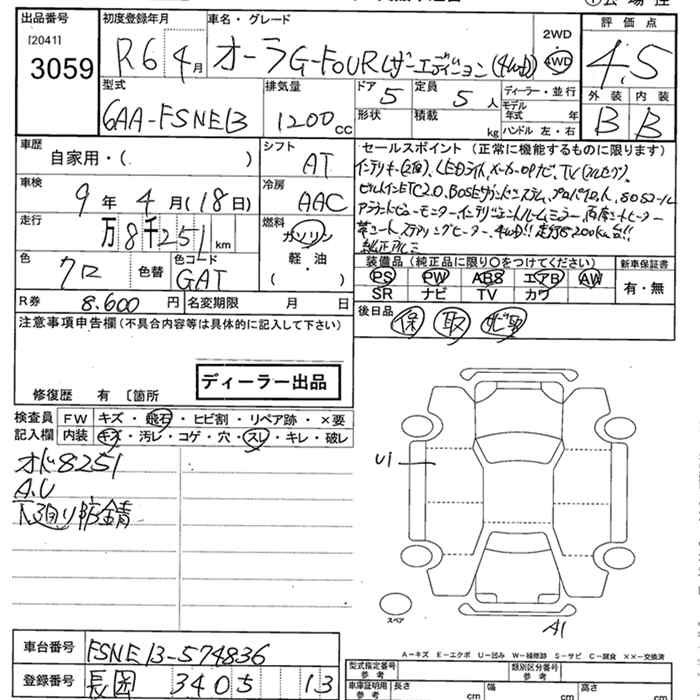 出品番号 初度登録年月 車名・グレード 2WD 評価点
[2041] 3059 R6年4月 オーラ G-FOUR レザーエディション(4WD) 4WD 4.5
型式 排気量 ドア 5 定員 5人 ディーラー・並行 外装 内装
6AA-FSNE13 1200cc 形状 積載 kg モデル年式 年 B B
ハンドル 左・右
車歴 シフト セールスポイント(正常に機能するものに限ります)
自家用・( ) AT インテリキー(2個)、LEDライト、メーカーOPナビ、TV(フルセグ)、
車検 冷房 ビルトインETC2.0、BOSEサウンドシステム、プロパイロット、SOSコール
9年4月(18日) AAC アラウンドビューモニター、インテリジェントルームミラー、前席シートヒーター
走行 燃料 革シート、ステアリングヒーター、4WD!! 走行8,200km台!!
万8千251km ガソリン 純正アルミ
軽・油
( )
色 色替 色コード 装備品(純正品に限り○をつけてください) 新車保証書
クロ GAT PS PW ABS エアB AW 有・無
SR ナビ TV カワ
R券 8.600円 名変期限 月 日 後日品 保 取 ナビ取
注意事項申告欄(不具合内容等は具体的に記入して下さい)
ディーラー出品
修復歴 有 〔箇所
検査員 FW キズ・飛石・ヒビ割・リペア跡・×要
記入欄 内装 キズ・汚レ・コゲ・穴・スレ・キレ・破レ
オド8251
A.U
下廻り防錆
U1
スペア
A1
A-キズ E-エクボ U-凹み W-補修跡 S-サビ C-腐食 ××-交換済
車台番号 FSNE13-574836
登録番号 長岡 3405 13
型式指定番号 参考 類別区分番号 参考
車庫証明用 参考 長さ cm 幅 cm 高さ cm